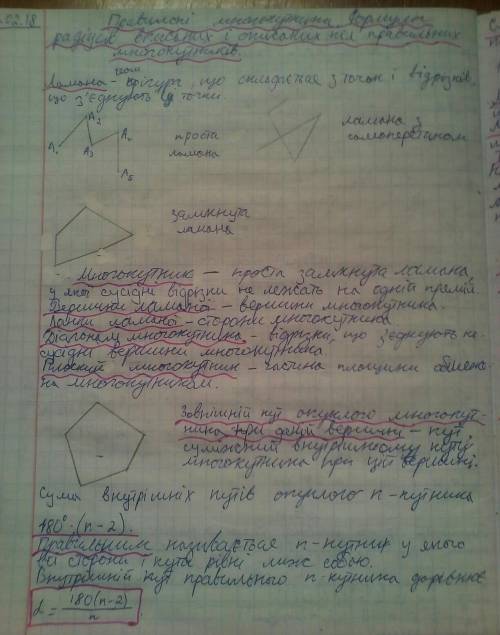 .02.18
Правильні многокутники. Формули
радіусів вписаних і описаних кіл правильних
многокутників.
геом.
Ламана - фігура, що складається з точок і відрізків,
що з'єднують ці точки.
A₁ A₂ A₃ A₄ A₅
проста
ламана
ламана з
самоперетином
замкнута
ламана
Многокутник — проста замкнута ламана,
у якої сусідні відрізки не лежать на одній прямій.
Вершини ламаної - вершини многокутника.
Ланки ламаної - сторони многокутника
Діагональ многокутника - відрізки, що з'єднують не-
сусідні вершини многокутника
Плоский многокутник - частина площини обмеже-
на многокутником.
Зовнішній кут опуклого многокут-
ника при даній вершині - кут
суміжний внутрішньому куту
многокутника при цій вершині.
Сума внутрішніх кутів опуклого n-кутника
180°·(n-2).
Правильним називається n-кутник у якого
всі сторони і кути рівні між собою.
Внутрішній кут правильного n-кутника дорівнює
α = 180(n-2)/n